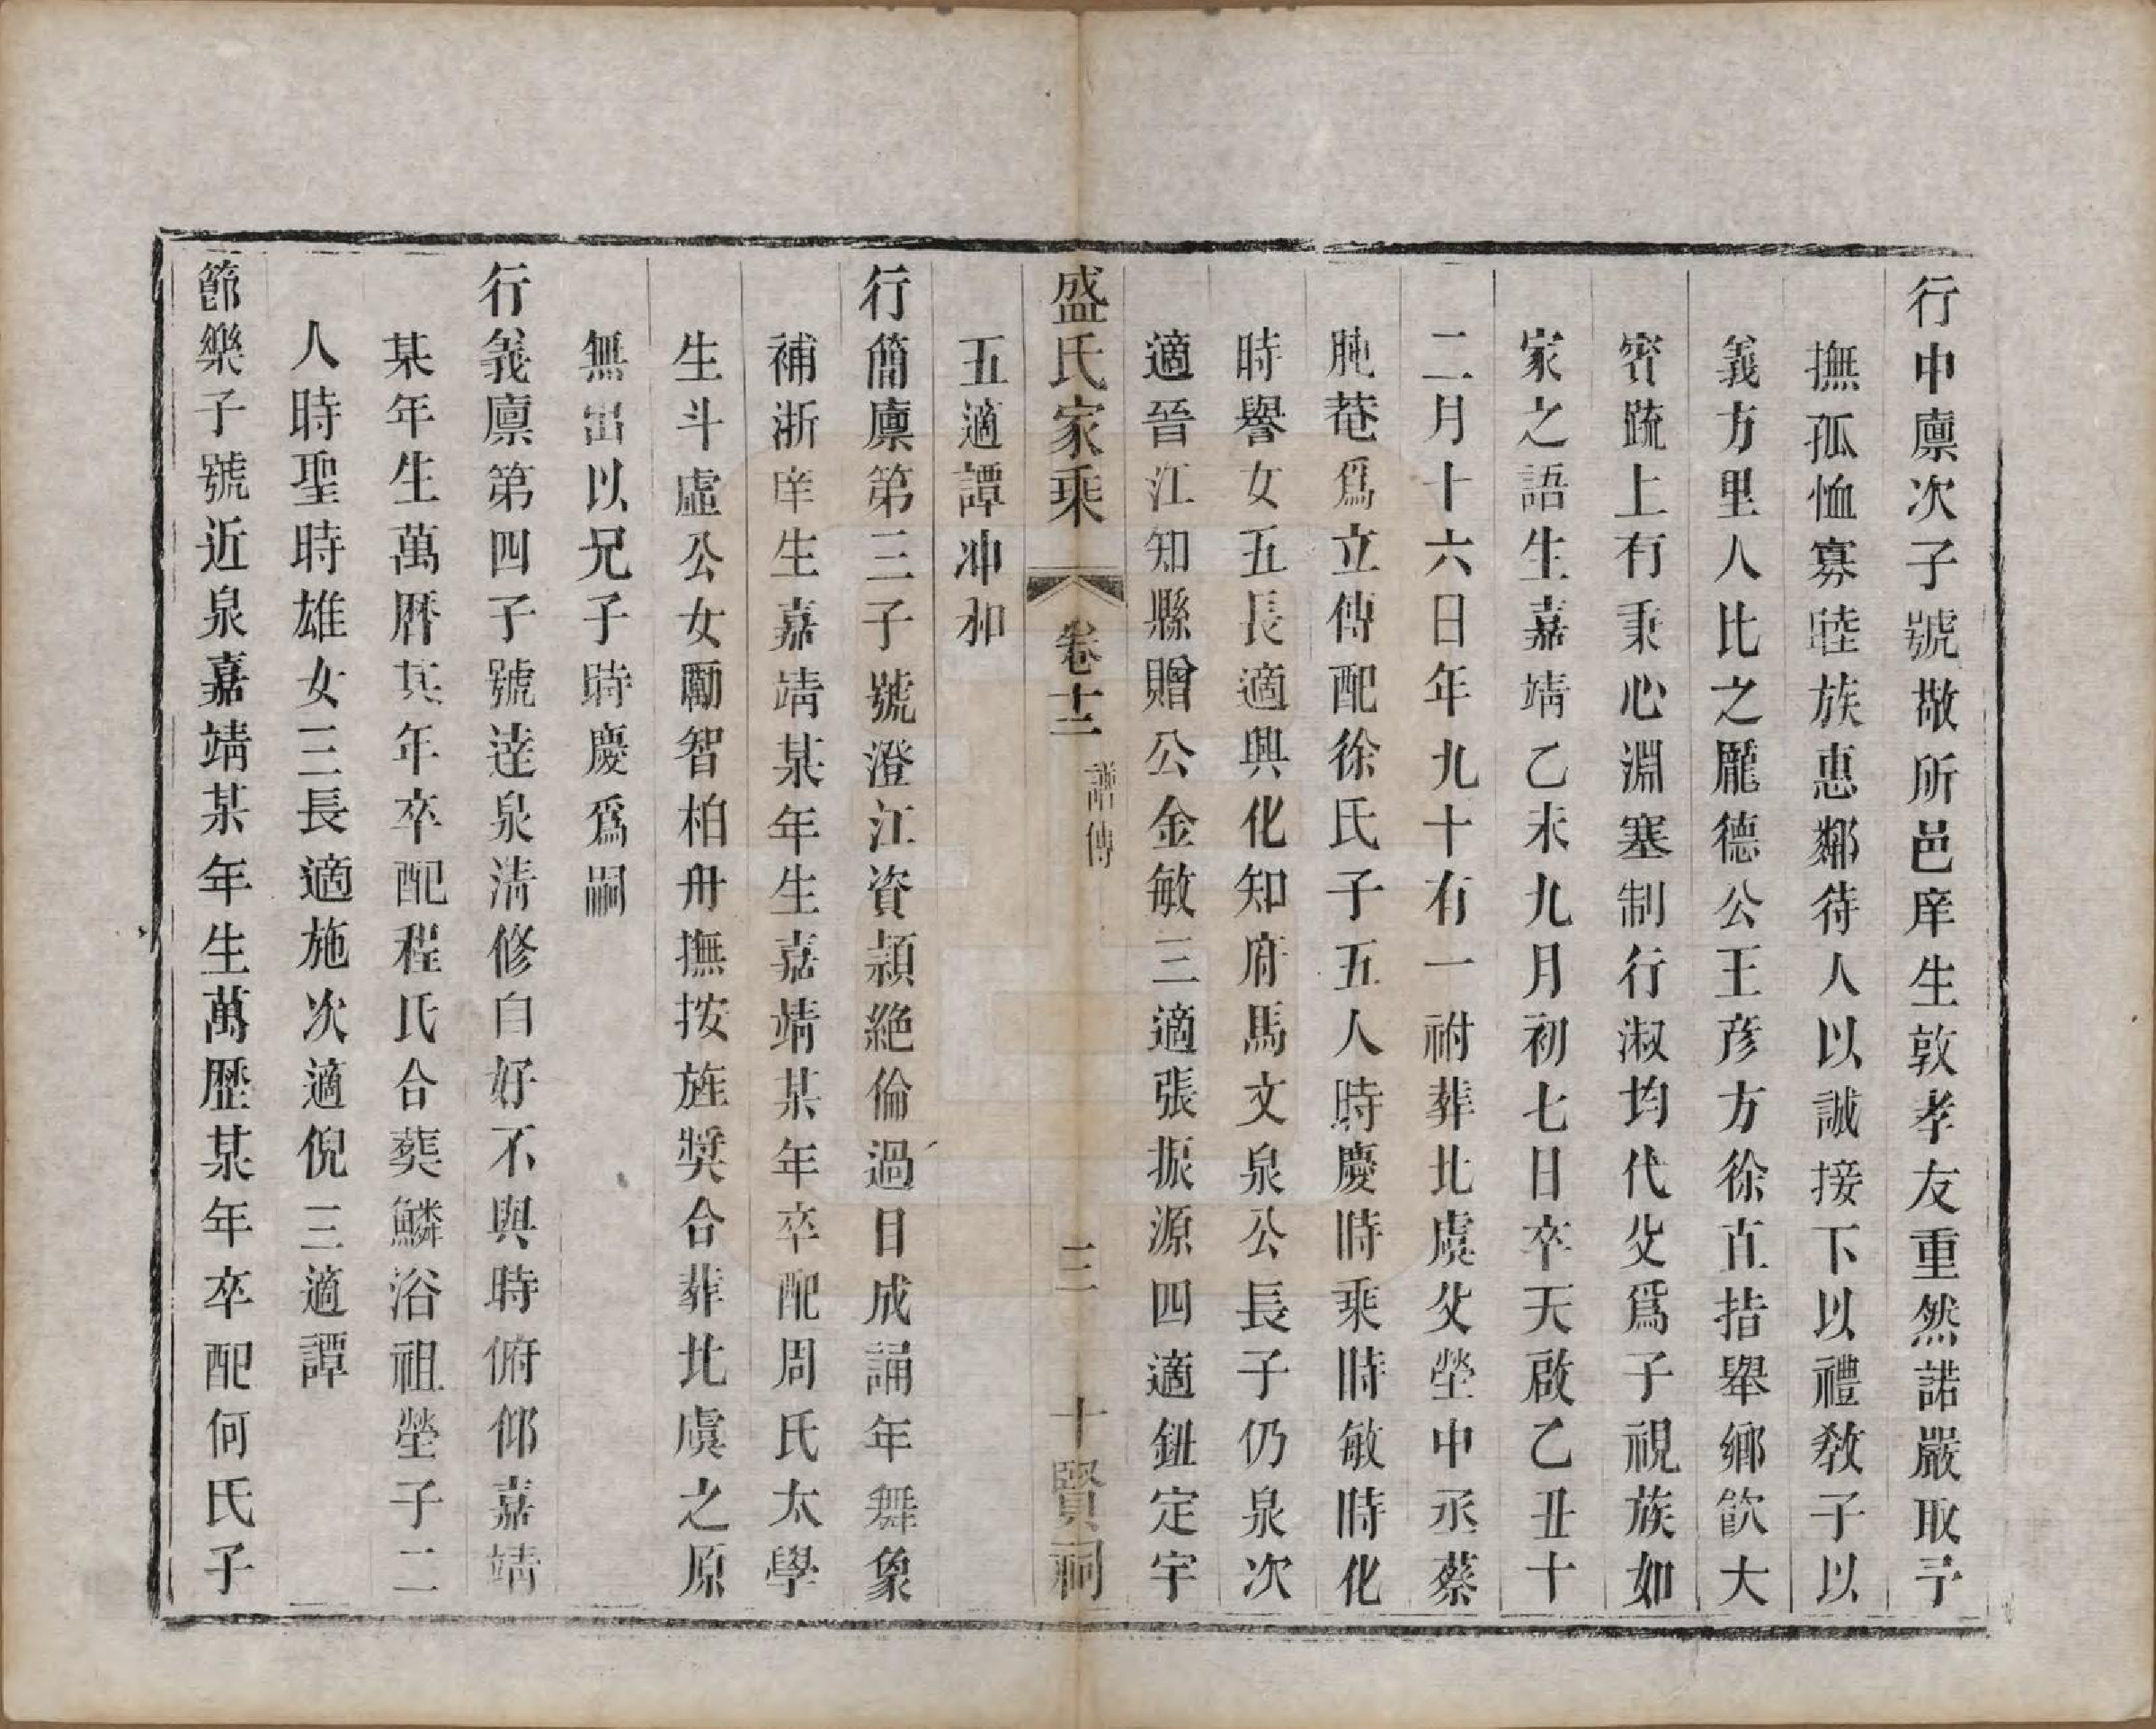 行中廪次子號敬所邑庠生敦孝友重然諾嚴取予
撫孤恤寡睦族惠鄰待人以誠接下以禮教子以
義方里人比之龎德公王彦方徐直指舉鄉飲大
密䟽上有秉心淵塞制行淑均代父爲子視族如
家之語生嘉靖乙未九月初七日卒天啟乙丑十
二月十六日年九十有一祔葬北虞父塋中丞蔡
肫菴爲立傳配徐氏子五人時慶時乘時敏時化
時譽女五長適興化知府馬文泉公長子仍泉次
適晉江知縣贈公金敏三適張振源四適鈕定宇
五適譚冲和
盛氏家乘 卷十二 譜傳 三 十賢祠
行簡廪第三子號澄江資穎絶倫過目成誦年舞象
補浙庠生嘉靖某年生嘉靖某年卒配周氏太學
生斗虛公女勵智柏舟撫按旌奬合葬北虞之原
無出以兄子時慶爲嗣
行義廪第四子號逹泉清修自好不與時俯仰嘉靖
某年生萬曆其年卒配程氏合葬鱗浴祖塋子二
人時聖時雄女三長適施次適倪三適譚
節樂子號近泉嘉靖某年生萬歷某年卒配何氏子